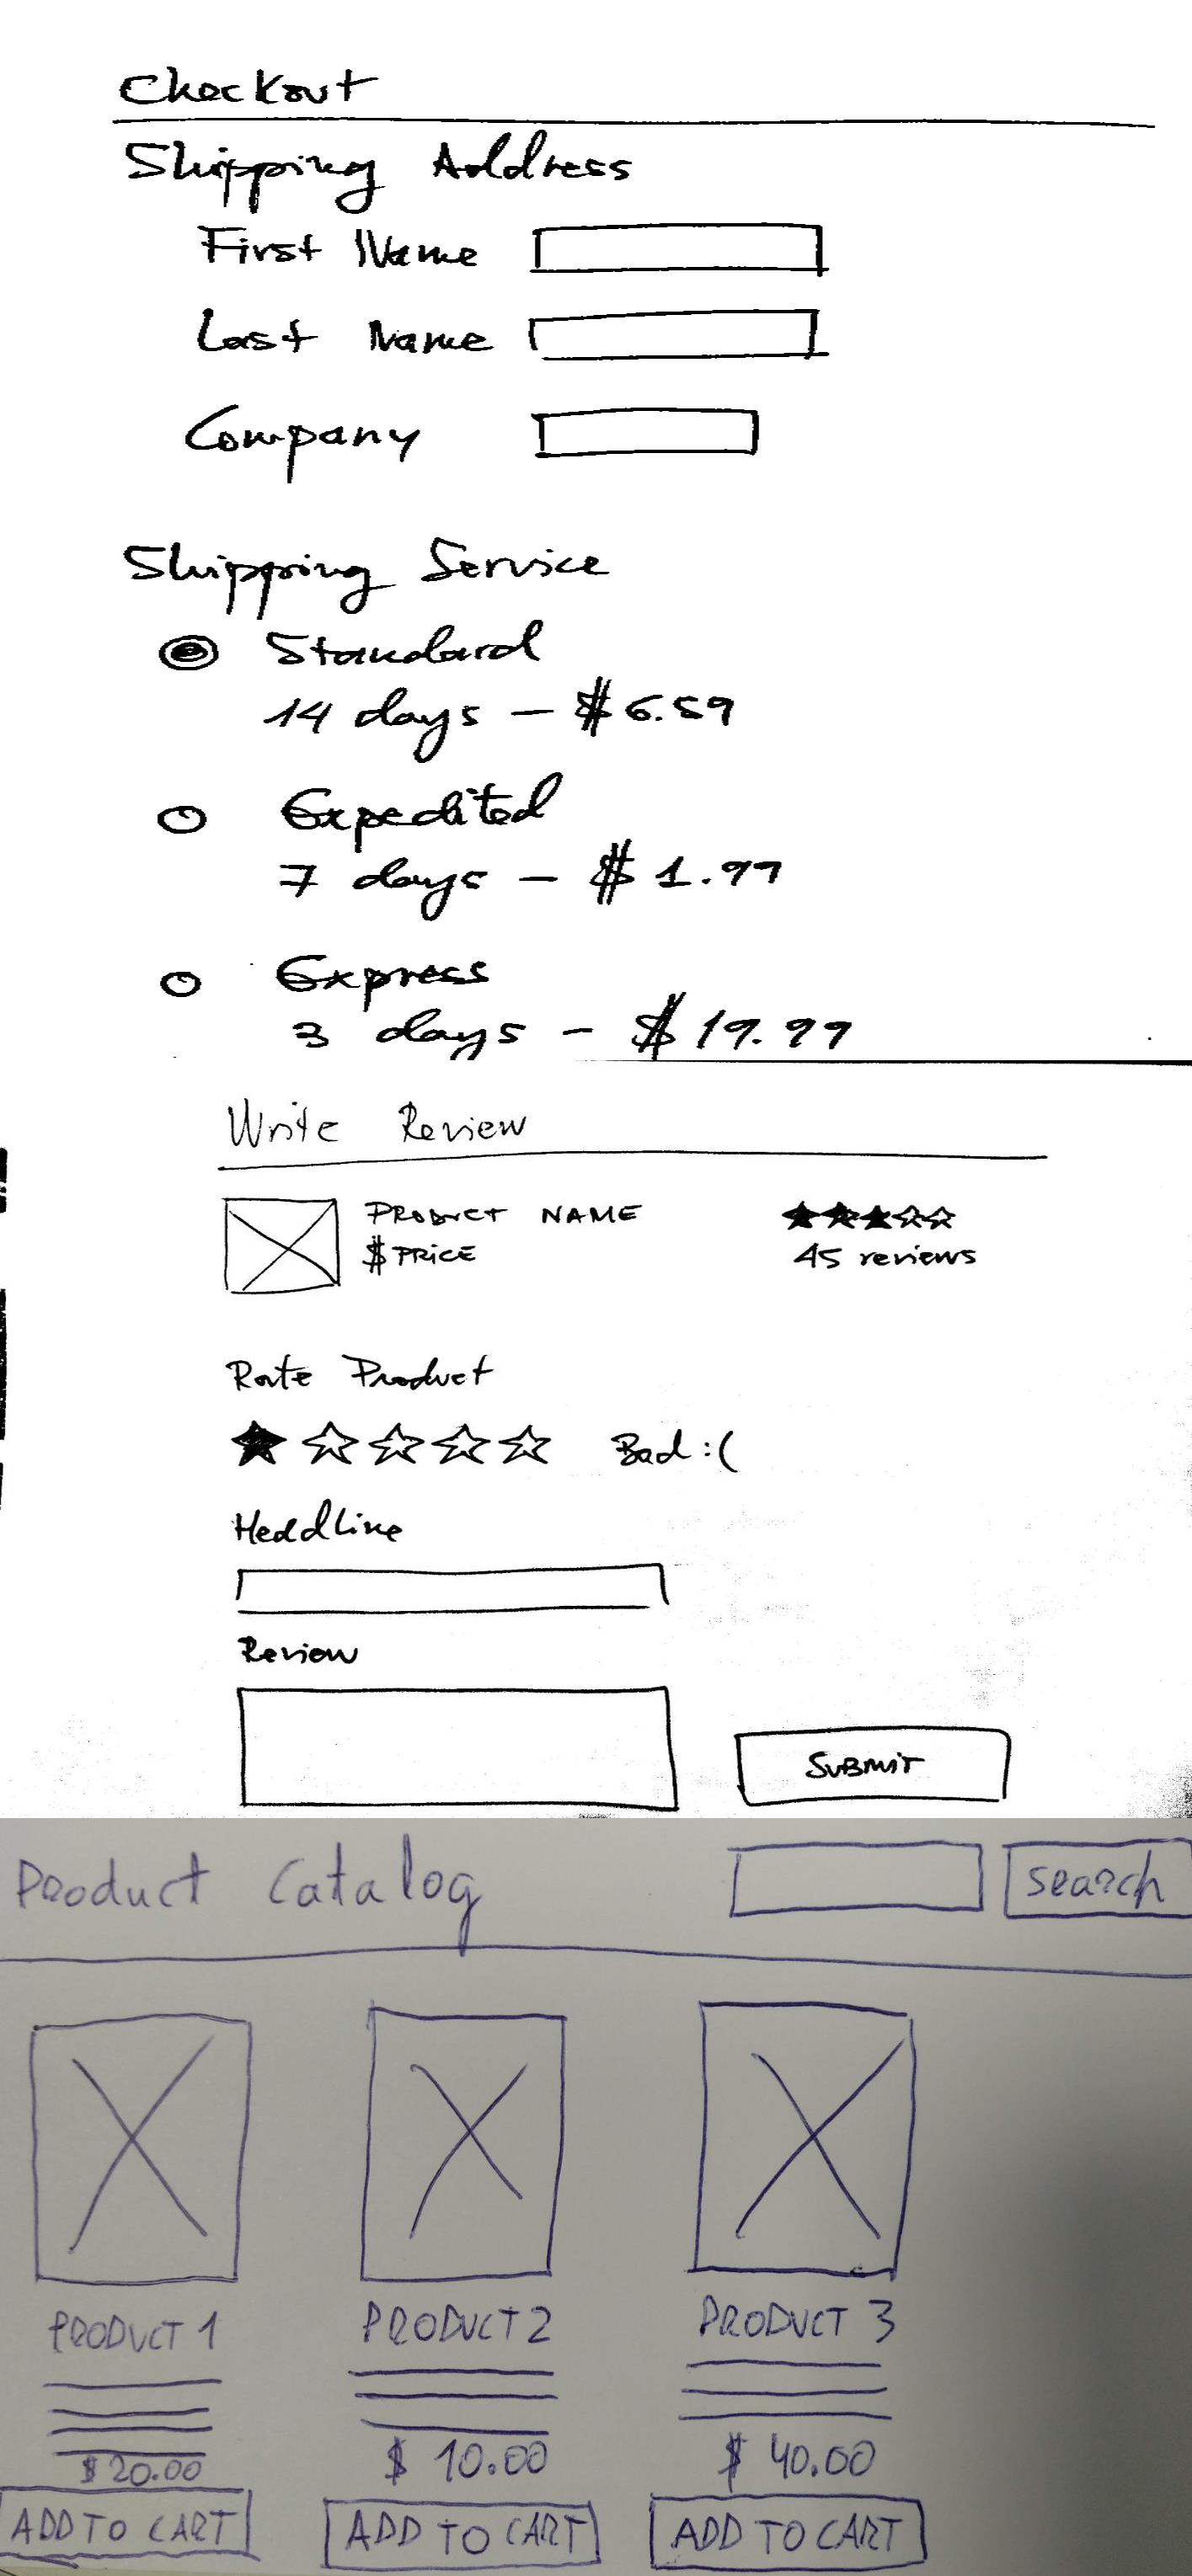 Checkout
Shipping Address
First Name
Last Name
Company
Shipping Service
Standard
14 days - $6.59
Expedited
7 days - $1.99
Express
3 days - $19.99
Write Review
PRODUCT NAME
$ PRICE
45 reviews
Rate Product
Bad :(
Headline
Review
SUBMIT
Product Catalog
search
PRODUCT 1 PRODUCT 2 PRODUCT 3
$20.00 $ 10.00 $ 40.00
ADD TO CART ADD TO CART ADD TO CART